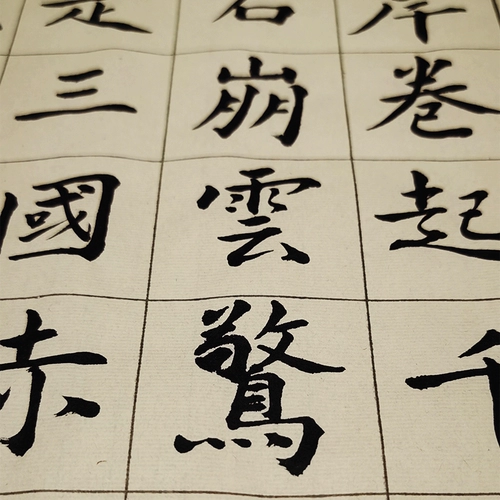 是三國赤
石崩雲驚
岸卷起千